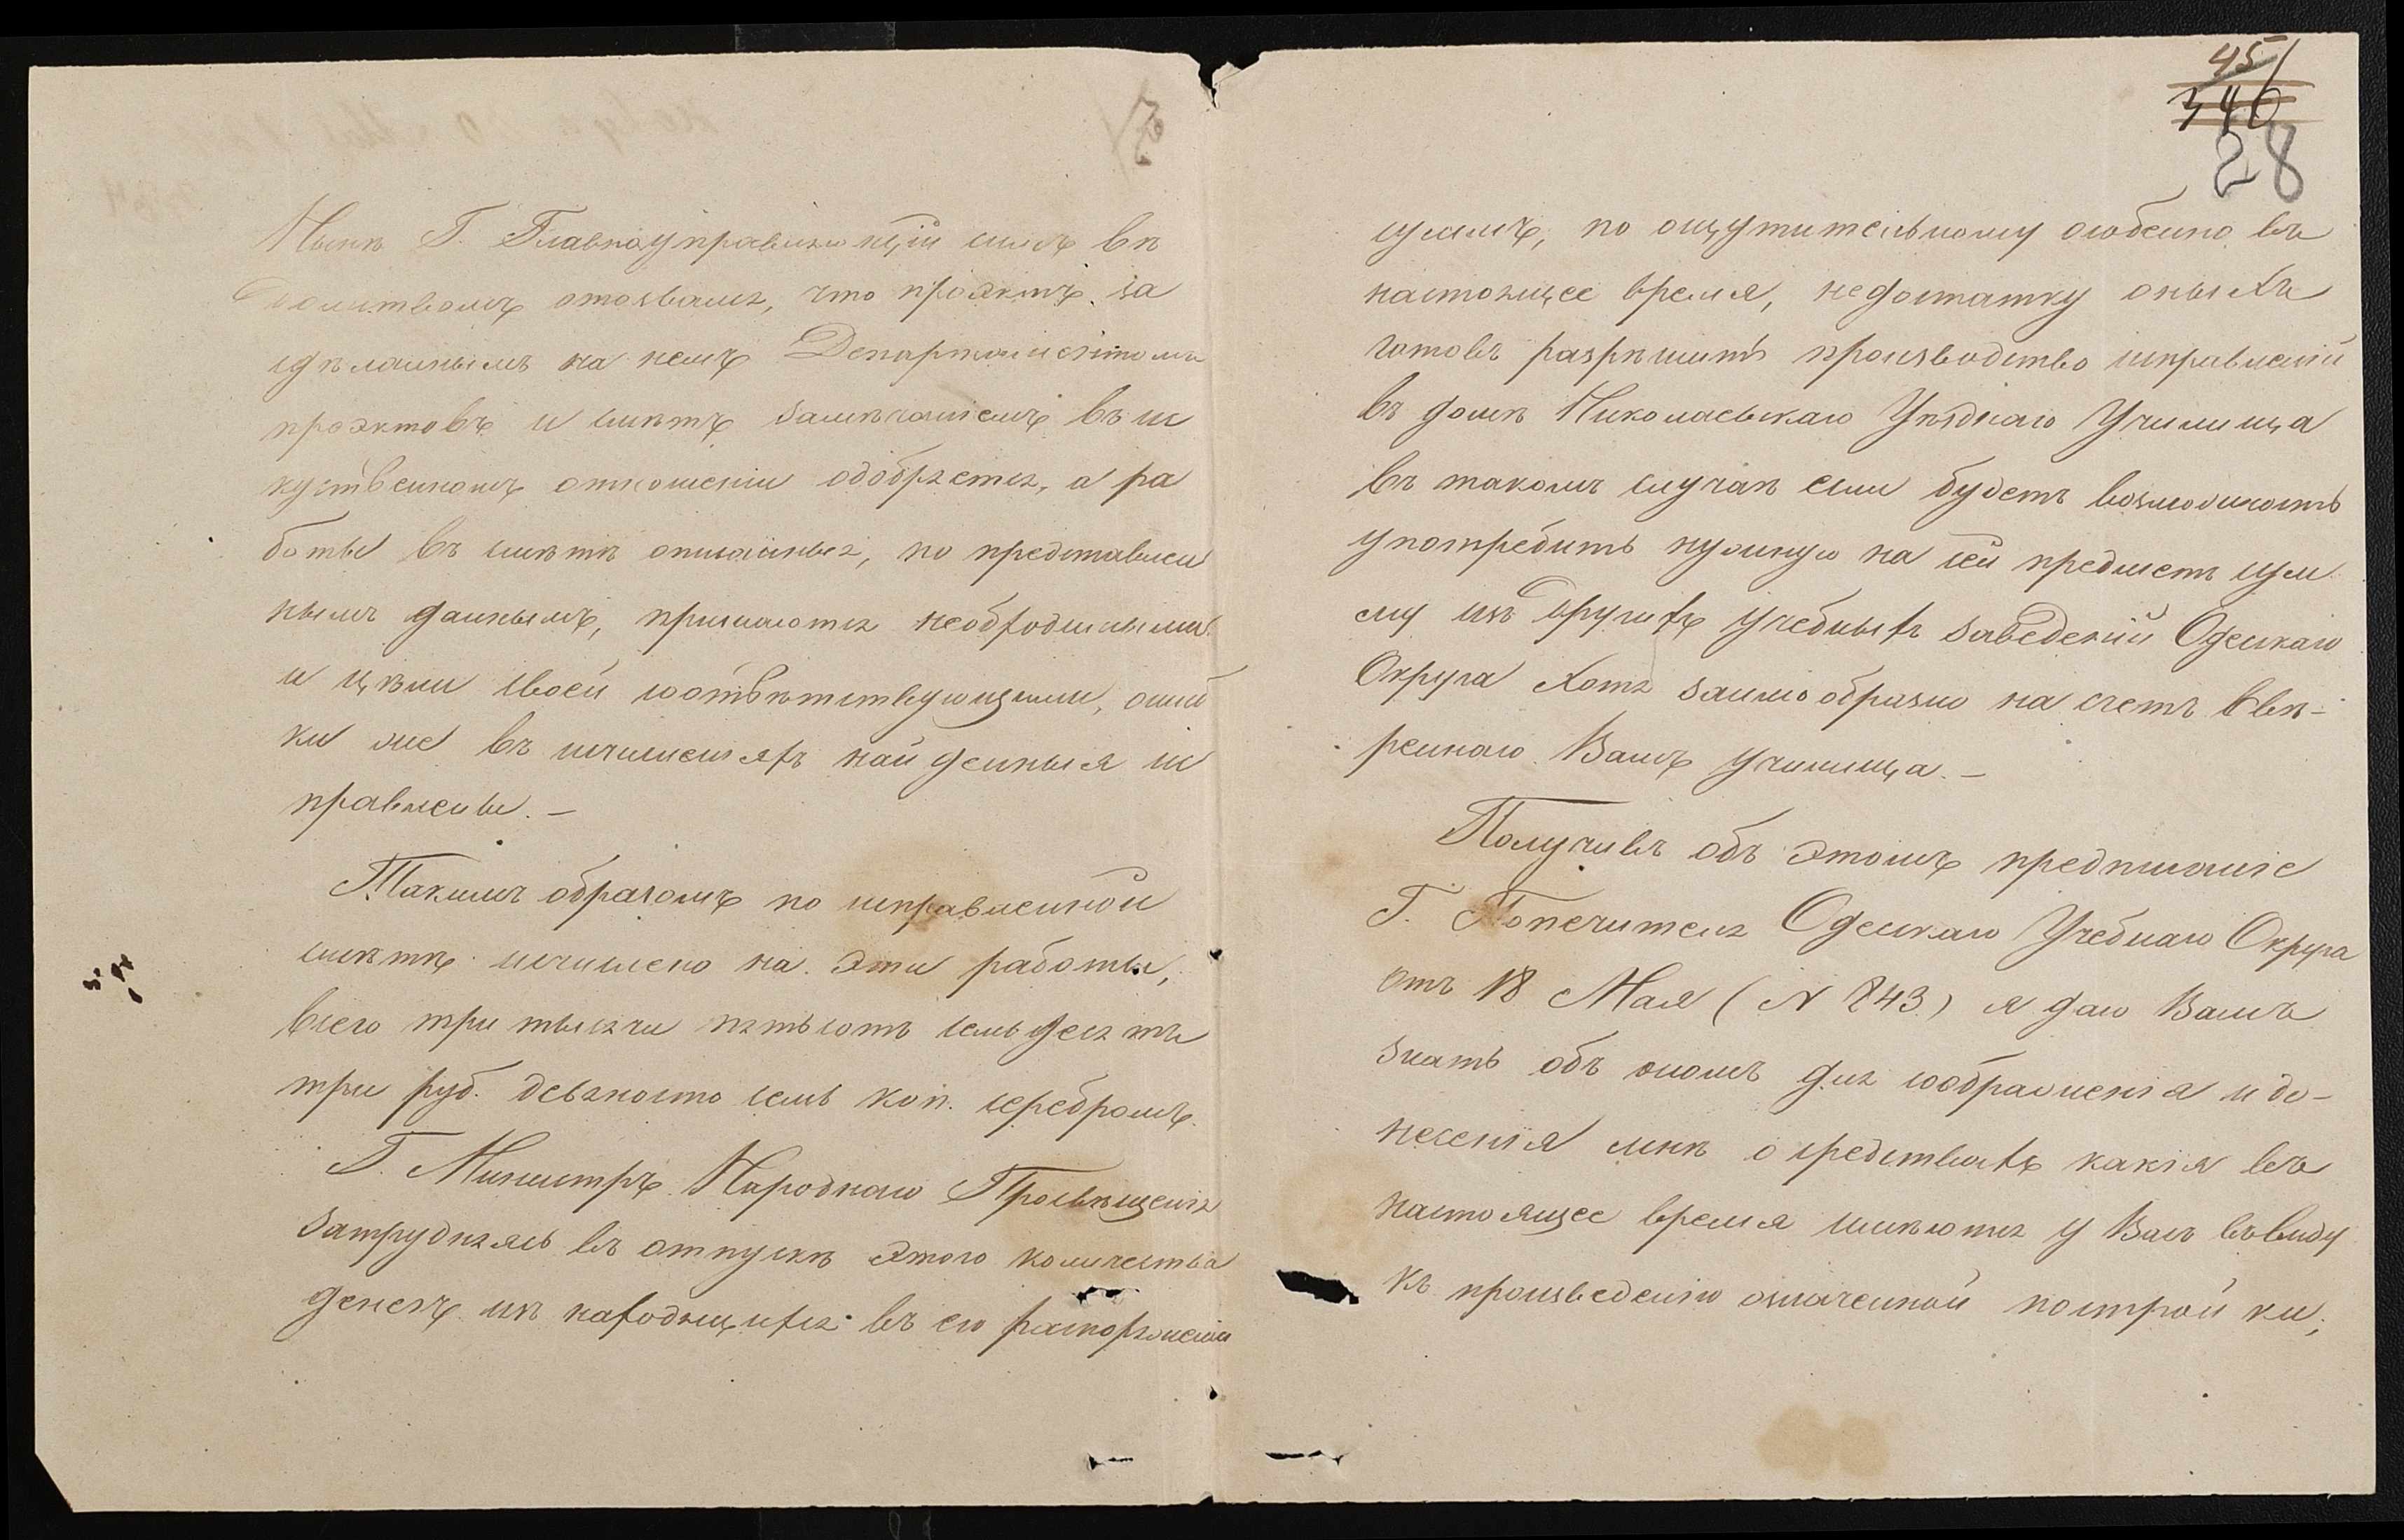 Нынѣ Г. Главноуправляющій симъ вѣ
домствомъ отозвался, что проэктъ за
сдѣланнымъ на немъ Департаментомъ
проэктовъ и смѣтъ замѣчаніемъ въ ис
куственномъ отношеніи одобряется, а ра
боты въ смѣтѣ описанныя, по представлен
нымъ даннымъ, признаются необходимыми
и цѣли своей соотвѣтствующими, ошиб
ки же въ исчисленіяхъ найденныя ис
правлены. –
Такимъ образомъ по исправленной
смѣтѣ исчислено на эти работы,
всего три тысячи пятьсотъ семьдесятъ
три руб. девяносто семь коп. серебромъ.
Г. Министръ Народнаго Просвѣщенія
затрудняясь въ отпускѣ этого количества
денегъ изъ находящихся въ его распоряженіи
45
346
28
суммъ, по ощутительному особенно въ
настоящее время, недостатку оныхъ
готовъ разрѣшить производство исправленій
въ домѣ Николаевскаго Уѣзднаго Училища
въ такомъ случаѣ если будетъ возможность
употребить нужную на сей предметъ сум
му изъ другихъ учебныхъ заведеній Одескаго
Округа хотя заимообразно на счетъ ввѣ-
реннаго Вамъ училища. –
Получивъ объ этомъ предписаніе
Г. Попечителя Одескаго Учебнаго Округа
отъ 18 Мая (N 843) я даю Вамъ
знать объ ономъ для соображенія и до-
несенія мнѣ о средствахъ какія въ
настоящее время имѣются у Васъ въ виду
къ произведенію означенной постройки;